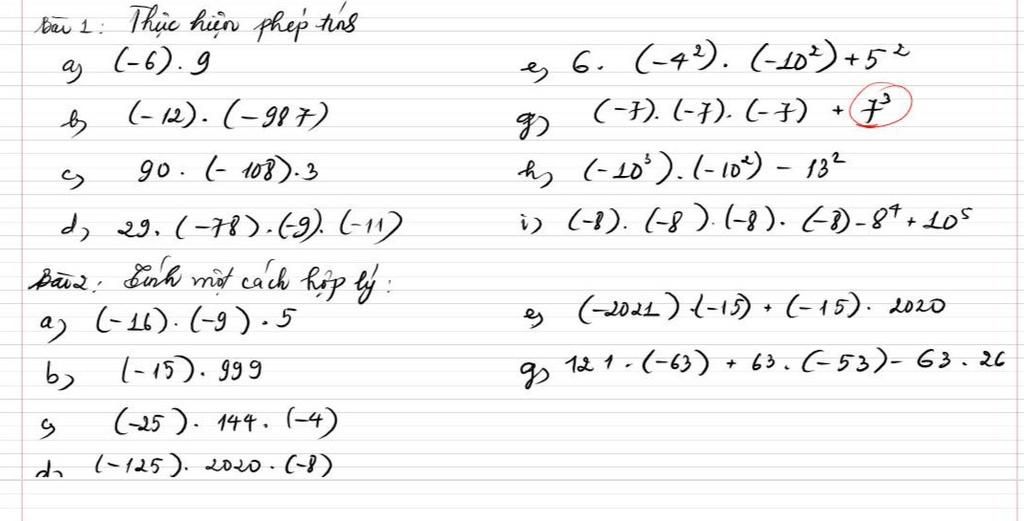 Bài 1: Thực hiện phép tính
a) (-6).9
b) (-12).(-987)
c) 90.(-108).3
d) 29.(-78).(-9).(-11)
e) 6.(-4²).(-10²)+5²
g) (-7).(-7).(-7) + 7³
h) (-10³).(-10²) - 13²
i) (-8).(-8).(-8).(-8)-8⁴+10⁵
Bài 2: Tính một cách hợp lý:
a) (-16).(-9).5
b) (-15).999
c) (-25).144.(-4)
d) (-125).2020.(-8)
e) (-2021).(-15)+(-15).2020
g) 121.(-63) + 63.(-53) - 63.26